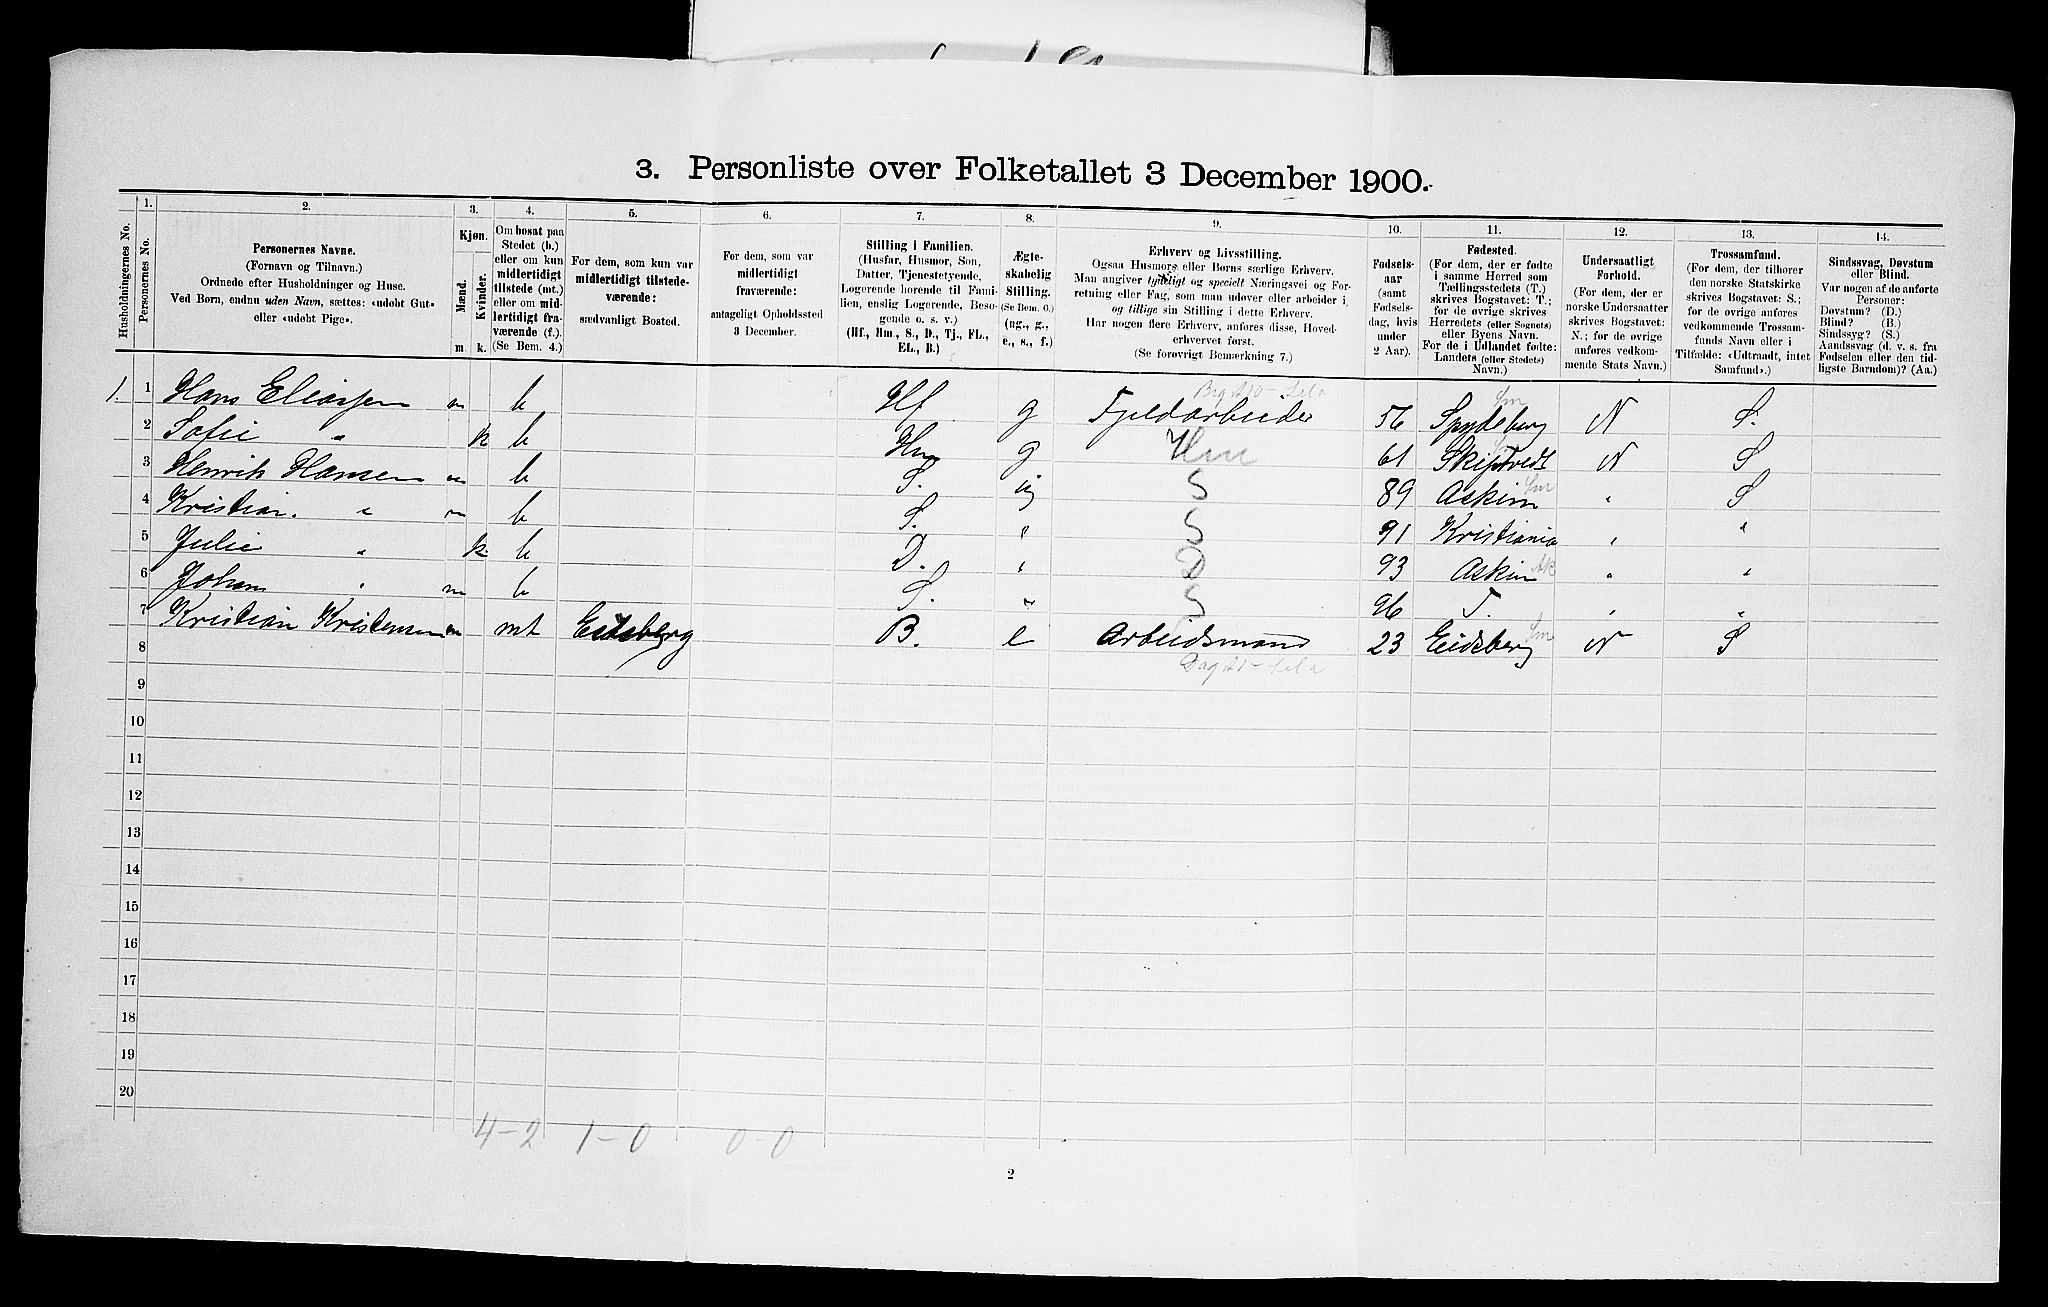 3. Personliste over Folketallet 3 December 1900.
1. 2. 3. 4. 5. 6. 7. 8. 9. 10. 11. 12. 13. 14.
Husholdningernes No.
Personernes No.
Personernes Navne.
(Fornavn og Tilnavn.)
Ordnede efter Husholdninger og Huse.
Ved Børn, endnu uden Navn, sættes: «udøbt Gut»
eller «udøbt Pige».
Kjøn.
Mænd.
Kvinder.
m k.
Om bosat paa
Stedet (b.)
eller om kun
midlertidigt
tilstede (mt.)
eller om mid-
lertidigt fra-
værende (f.).
(Se Bem. 4.)
For dem, som kun var
midlertidigt tilstede-
værende:
sædvanligt Bosted.
For dem, som var
midlertidigt
fraværende:
antageligt Opholdssted
3 December.
Stilling i Familien.
(Husfar, Husmor, Søn,
Datter, Tjenestetyende,
Logerende hørende til Fami-
lien, enslig Logerende, Besø-
gende o. s. v.)
(Hf., Hm., S., D., Tj., FL.,
EL., B.)
Ægte-
skabelig
Stilling.
(Se Bem. 6.)
(ug., g.,
e., s., f.)
Erhverv og Livsstilling.
Ogsaa Husmors eller Børns særlige Erhverv.
Man angiver tydeligt og specielt Næringsvei og For-
retning eller Fag, som man udøver eller arbeider i,
og tillige sin Stilling i dette Erhverv.
Har nogen flere Erhverv, anføres disse, Hoved-
erhvervet først.
(Se forøvrigt Bemærkning 7.)
Fødsels-
aar
(samt
Fødsels-
dag, hvis
under
2 Aar).
Fødested.
(For dem, der er fødte
i samme Herred som
Tællingsstedets (T.)
skrives Bogstavet: T.;
for de øvrige skrives
Herredets (eller Sognets)
eller Byens Navn.
For de i Udlandet fødte:
Landets (eller Stedets)
Navn.)
Undersaatligt
Forhold.
(For dem, der er
norske Undersaatter
skrives Bogstavet:
N.; for de øvrige
anføres vedkom-
mende Stats Navn.)
Trossamfund.
(For dem, der tilhører
den norske Statskirke
skrives Bogstavet: S.;
for de øvrige anføres
vedkommende Trossam-
funds Navn eller i
Tilfælde: «Udtraadt, intet
Samfund».)
Sindssvag, Døvstum
eller Blind.
Var nogen af de anførte
Personer:
Døvstum? (D.)
Blind? (B.)
Sindssyg? (S.)
Aandssvag (d. v. s. fra
Fødselen eller den tid-
ligste Barndom)? (Aa.)
1. 1 Hans Eliassen m b Hf g Fjeldarbeider 56 Spydeberg N S.
2 Sofie " k b Hm g Hm 61 Skiptvedt N S
3 Henrik Hansen m b S. ug S 89 Askim " S
4 Kristian. " m b S. " S 91 Kristiania " "
5 Julie " k b D. " D 93 Askim " "
6 Johan " m b S. " S 96 T. " "
7 Kristian Kristensen m mt Eidsberg B. e Arbeidsmand 23 Eidsberg N S
8
9
10
11
12
13
14
15
16
17
18
19
20
4-2 1-0 0-0
2